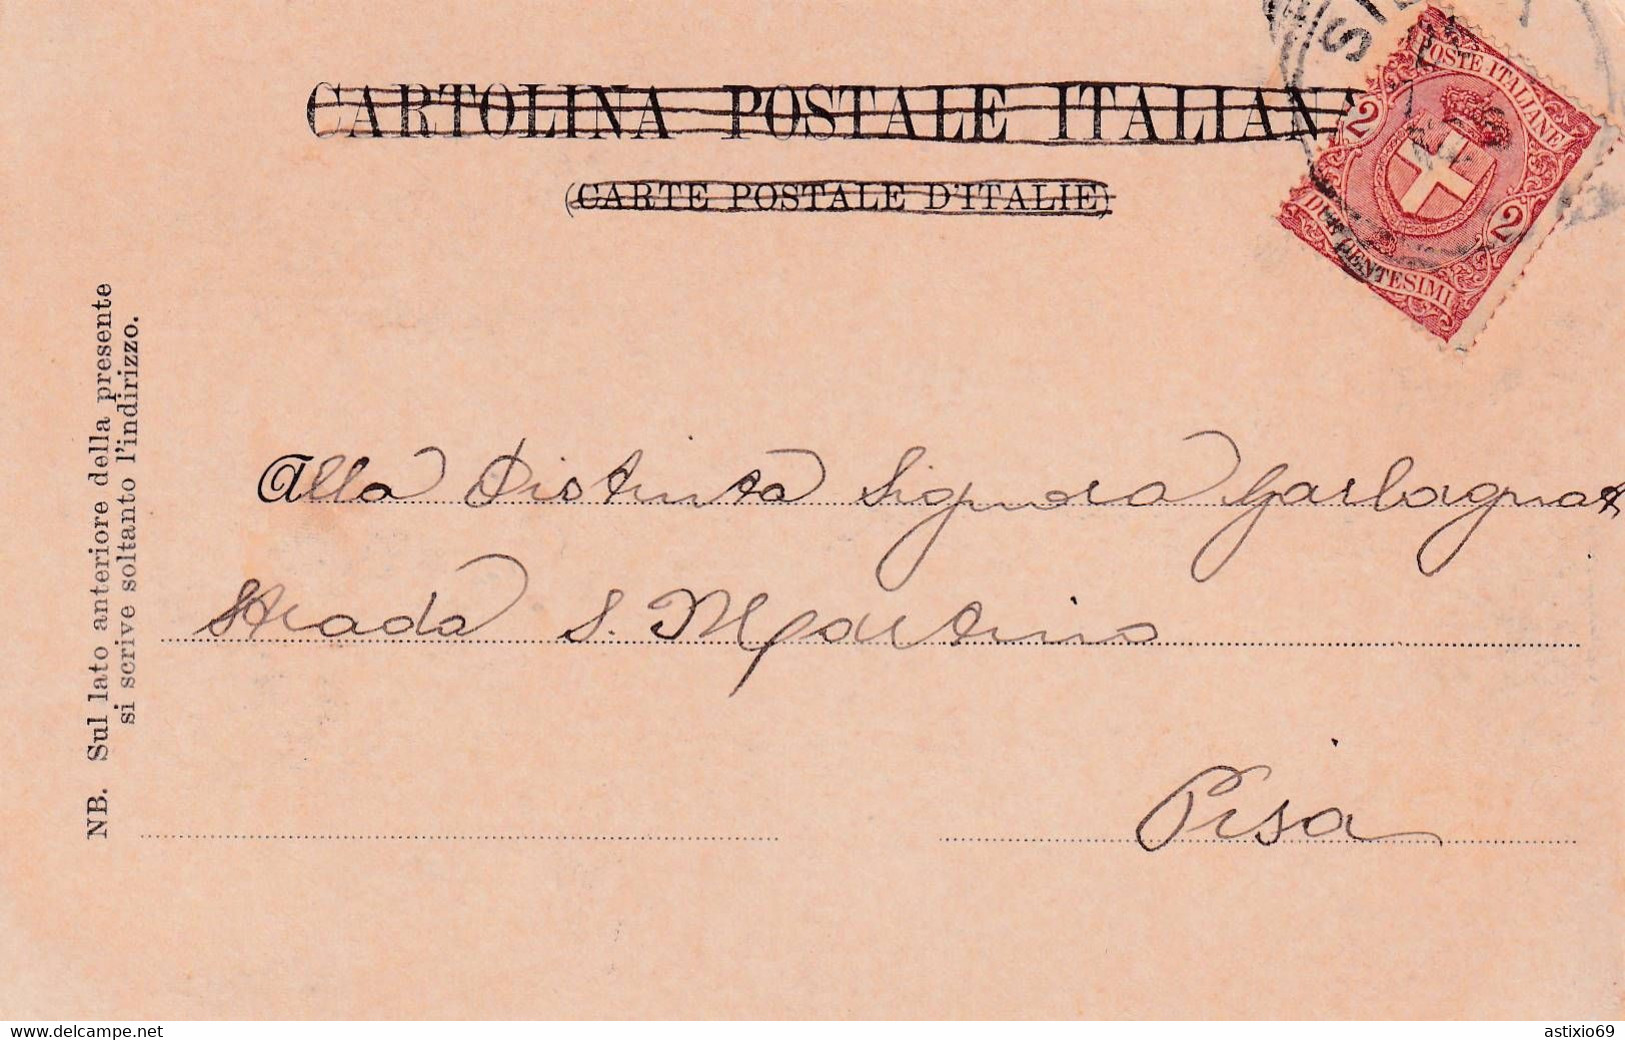 CARTOLINA POSTALE ITALIANA
(CARTE POSTALE D'ITALIE)
POSTE ITALIANE
2
2
DUE CENTESIMI
NB. Sul lato anteriore della presente
si scrive soltanto l'indirizzo.
Alla Distinta Signora Garbagnat
Strada S. Martino
Pisa
www.delcampe.net
astixio69